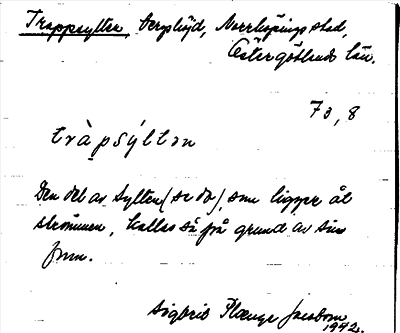 Trappsylten, berghöjd, Norrköpings stad,
Östergötlands län.
73, 8
tràpsýltən
Den del av Sylten (se do), som ligger åt
strömmen, kallas så på grund av sin
form.
Sigbrit Plænge Jacobson
1992.